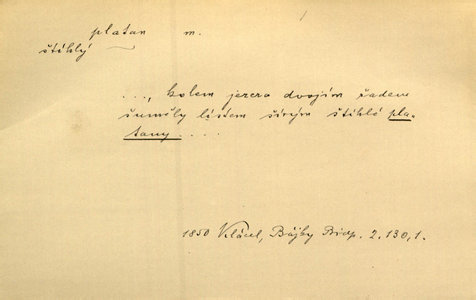 platan m.
štíhlý ~
..., kolem jezera dvojím řadem
šuměly listem širým štíhlé pla-
tany ....
1850 Klácel, Bájky Bidp. 2, 130, 1.